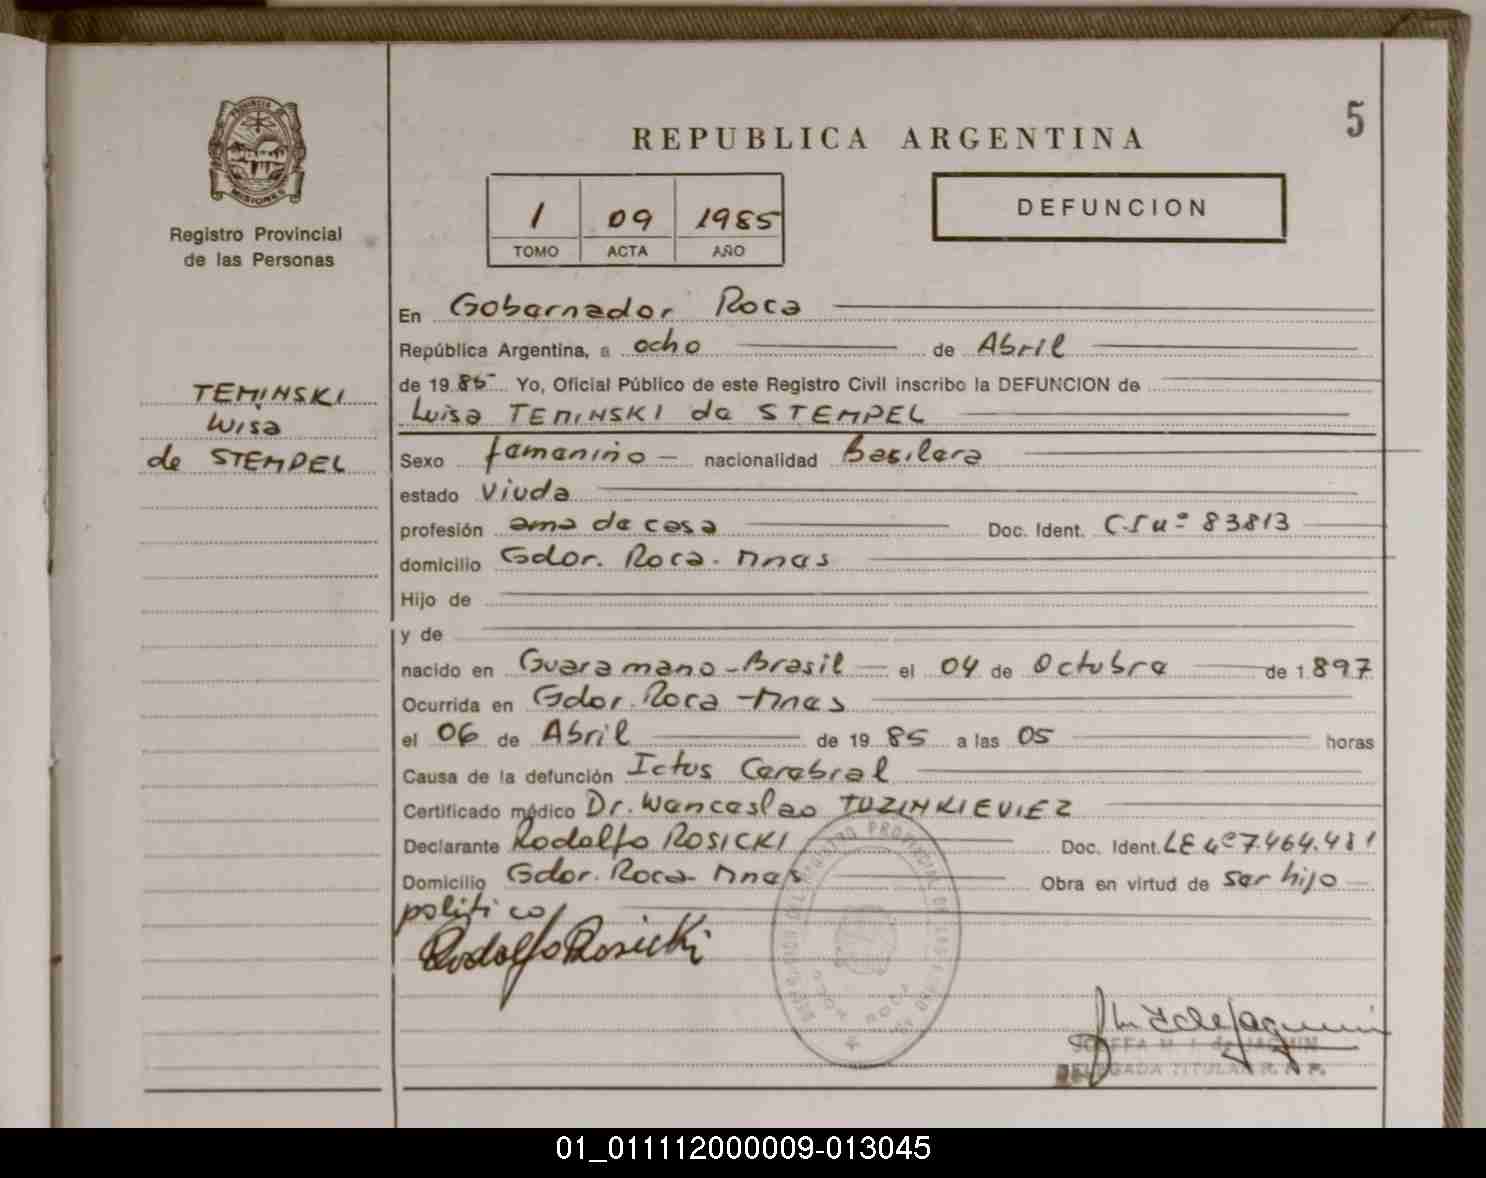 5
REPUBLICA ARGENTINA
PROVINCIA DE
MISIONES
Registro Provincial
de las Personas
1 09 1985
TOMO ACTA AÑO
DEFUNCION
TEMINSKI
Luisa
de STEMPEL
En Gobernador Roca
República Argentina, a ocho de Abril
de 1985 Yo, Oficial Público de este Registro Civil inscribo la DEFUNCION de
Luisa TEMINSKI de STEMPEL
Sexo femenino nacionalidad Basilera
estado Viuda
profesión ama de casa Doc. Ident. C.I nº 83813
domicilio Gdor. Roca. Mnes
Hijo de
y de
nacido en Guaramano-Brasil el 04 de Octubre de 1897
Ocurrida en Gdor. Roca - Mnes
el 06 de Abril de 1985 a las 05 horas
Causa de la defunción Ictus Cerebral
Certificado médico Dr. Wenceslao TUZINKIEVIEZ
Declarante Rodolfo ROSICKI Doc. Ident. LE nº 7.464.481
Domicilio Gdor. Roca - Mnes Obra en virtud de ser hijo
politico
Rodolfo Rosicki
REGISTRO PROVINCIAL DE LAS
GDOR ROCA
JOSEFA M. I. de JAQUIM
DELEGADA TITULAR R. P. P.
01_011112000009-013045